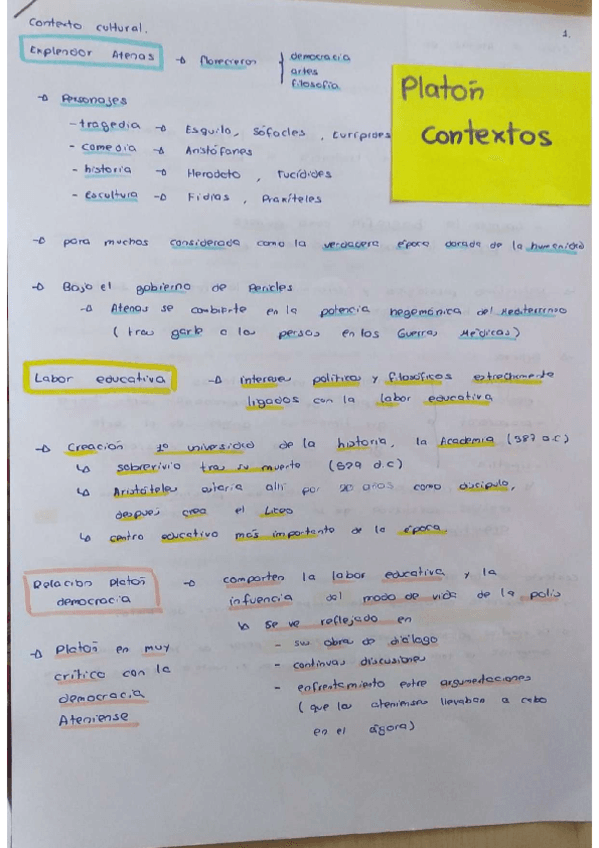 Contexto cultural.
1.
Explendor Atenas → florecieron { democracia
artes
filosofía
Platón
Contextos
→ Personajes
- tragedia → Esquilo, Sófocles, Eurípides
- comedia → Aristófones
- historia → Herodoto, Tucídides
- escultura → Fidias, Praxíteles
→ para muchos considerada como la verdadera época dorada de la humanidad
→ Bajo el gobierno de Pericles
→ Atenas se combierte en la potencia hegemónica del Mediterráneo
( tras garle a los persas en las Guerras Médicas)
Labor educativa → intereses políticos y filosóficos estrechamente
ligados con la labor educativa
→ Creación 1º universidad de la historia, la Academia (387 a.c)
↳ sobrevivio tras su muerte (529 d.c)
↳ Aristóteles estaría allí por 20 años como discípulo,
después crea el Liceo
↳ centro educativo más importante de la época.
Relación Platón
democracia
→ comparten la labor educativa y la
infuencia del modo de vida de la polis
↳ se ve reflejado en
- su obra de diálogo
- continuas discusiones
- enfrentamiento entre argumentaciones
( que los atenienses llevaban a cabo
en el ágora)
→ Platón en muy
crítico con la
democracia
Ateniense